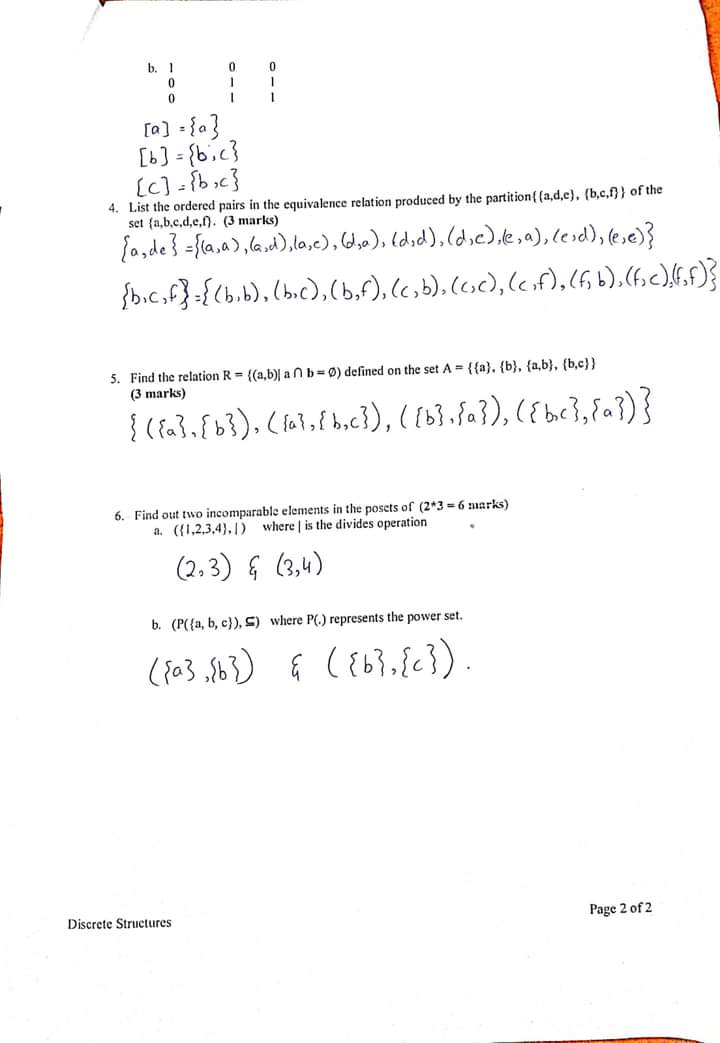 b. 1 0 0
0 1 1
0 1 1
[a] = {a}
[b] = {b,c}
[c] = {b,c}
4. List the ordered pairs in the equivalence relation produced by the partition{{a,d,e}, {b,c,f}} of the
set {a,b,c,d,e,f}. (3 marks)
{a,de} = {(a,a),(a,d),(a,e),(d,a),(d,d),(d,e),(e,a),(e,d),(e,e)}
{b,c,f} = {(b,b),(b,c),(b,f),(c,b),(c,c),(c,f),(f,b),(f,c),(f,f)}
5. Find the relation R = {(a,b)| a ∩ b = Ø) defined on the set A = {{a}, {b}, {a,b}, {b,c}}
(3 marks)
{({a},{b}),({a},{b,c}),({b},{a}),({b,c},{a})}
6. Find out two incomparable elements in the posets of (2*3 = 6 marks)
a. ({1,2,3,4}, |) where | is the divides operation
(2,3) & (3,4)
b. (P({a, b, c}), ⊆) where P(.) represents the power set.
({a},{b}) & ({b},{c}).
Page 2 of 2
Discrete Structures